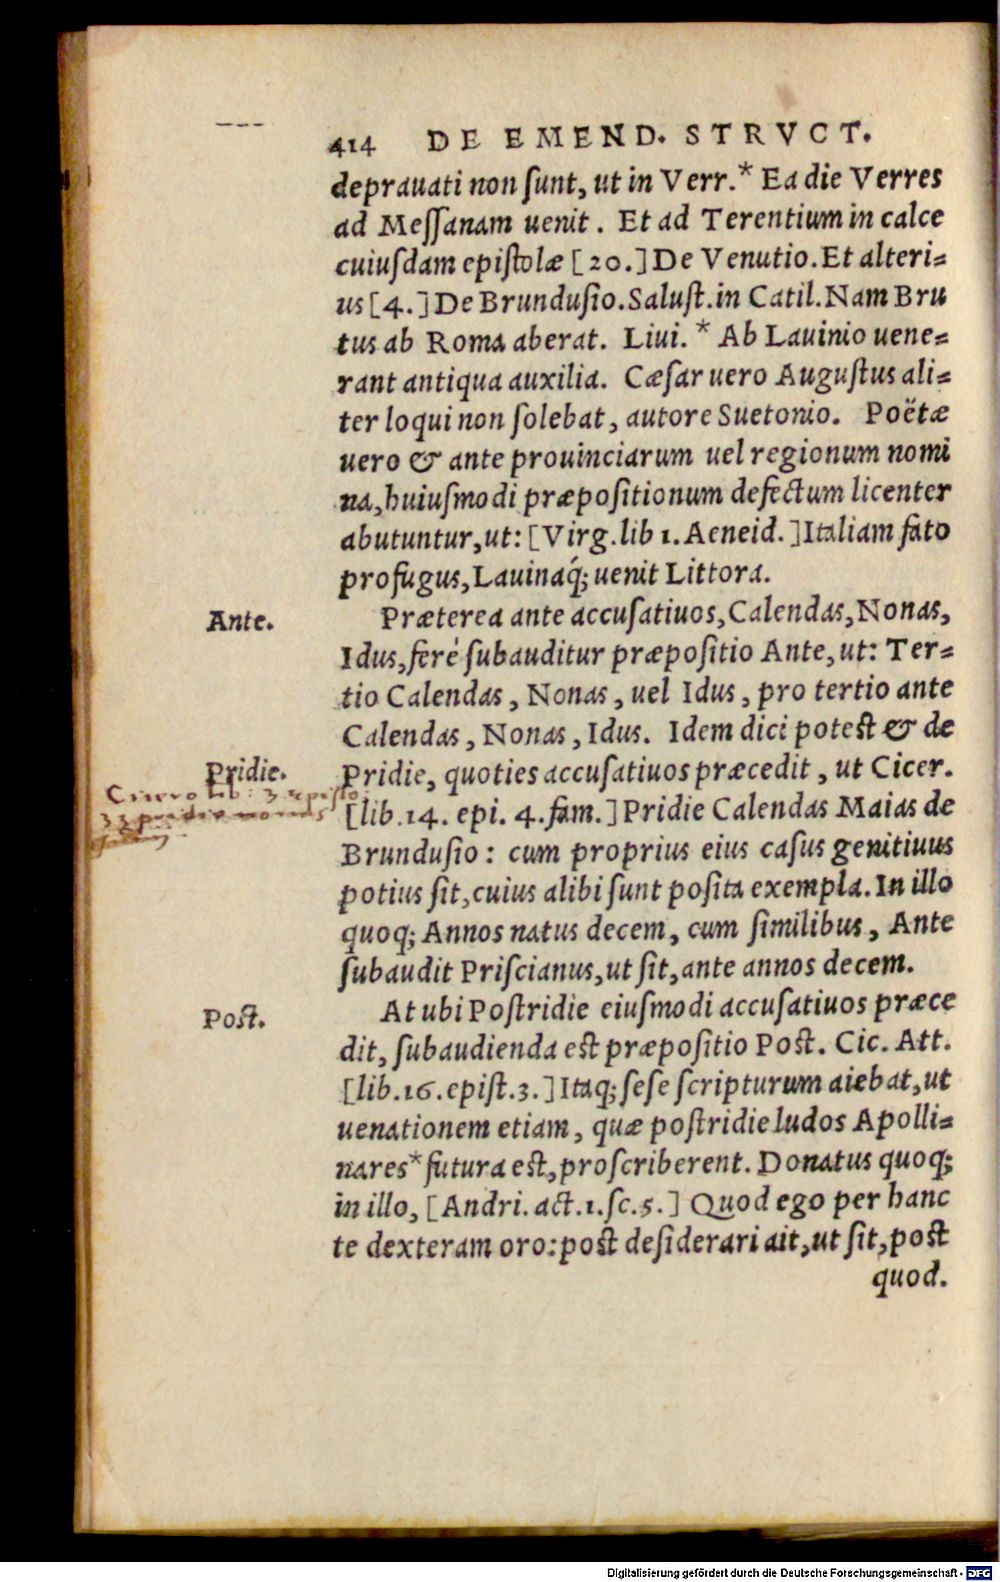 414 DE EMEND. STRVCT.
deprauati non ſunt, ut in Verr.* Ea die Verres
ad Meſſanam uenit. Et ad Terentium in calce
cuiuſdam epiſtolæ [20.] De Venutio. Et alteri=
us [4.] De Brunduſio. Saluſt. in Catil. Nam Bru
tus ab Roma aberat. Liui.* Ab Lauinio uene=
rant antiqua auxilia. Cæſar uero Auguſtus ali=
ter loqui non ſolebat, autore Suetonio. Poëtæ
uero & ante prouinciarum uel regionum nomi
na, huiuſmodi præpoſitionum defectum licenter
abutuntur, ut: [Virg. lib 1. Aeneid.] Italiam fato
profugus, Lauinaq́; uenit Littora.
Ante.
Præterea ante accuſatiuos, Calendas, Nonas,
Idus, ferè ſubauditur præpoſitio Ante, ut: Ter=
tio Calendas, Nonas, uel Idus, pro tertio ante
Calendas, Nonas, Idus. Idem dici poteſt & de
Pridie.
Pridie, quoties accuſatiuos præcedit, ut Cicer.
Cicero lib: 3 epiſto
33 pridie nonas
[lib.14. epi. 4. fam.] Pridie Calendas Maias de
Brunduſio: cum proprius eius caſus genitiuus
potius ſit, cuius alibi ſunt poſita exempla. In illo
quoq; Annos natus decem, cum ſimilibus, Ante
ſubaudit Priſcianus, ut ſit, ante annos decem.
Poſt.
At ubi Poſtridie eiuſmodi accuſatiuos præce
dit, ſubaudienda eſt præpoſitio Poſt. Cic. Att.
[lib.16. epiſt.3.] Itaq; ſeſe ſcripturum aiebat, ut
uenationem etiam, quæ poſtridie ludos Apolli=
nares* futura eſt, proſcriberent. Donatus quoq;
in illo, [Andri. act.1. ſc.5.] Quod ego per hanc
te dexteram oro: poſt deſiderari ait, ut ſit, poſt
quod.
Digitalisierung gefördert durch die Deutsche Forschungsgemeinschaft - DFG